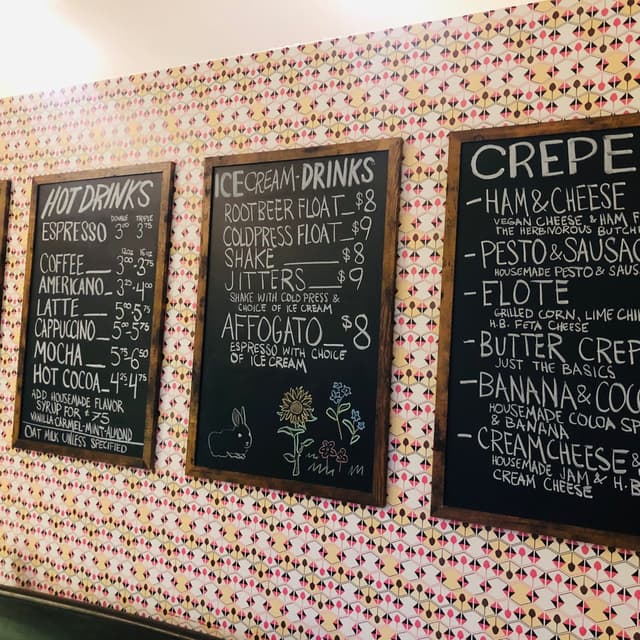 HOT DRINKS
DOUBLE TRIPLE
ESPRESSO 3.00 3.75
COFFEE
AMERICANO 3.25-4.00
LATTE 5.00-5.75
CAPPUCCINO 5.00-5.75
MOCHA 5.75-6.50
HOT COCOA 4.25 4.75
ADD HOUSEMADE FLAVOR
SYRUP FOR $.75
VANILLA·CARAMEL·MINT·ALMOND
OAT MILK UNLESS SPECIFIED
ICE CREAM-DRINKS
ROOTBEER FLOAT_$8
COLDPRESS FLOAT_$9
SHAKE $8
JITTERS $9
SHAKE WITH COLD PRESS &
CHOICE OF ICE CREAM
AFFOGATO_$8
ESPRESSO WITH CHOICE
OF ICE CREAM
CREPE
-HAM & CHEESE
VEGAN CHEESE & HAM
THE HERBIVOROUS BUTCH
-PESTO & SAUSAG
HOUSEMADE PESTO & SAUS
-ELOTE
GRILLED CORN, LIME CHI
H.B. FETA CHEESE
-BUTTER CREP
JUST THE BASICS
-BANANA & COC
HOUSEMADE COCOA SP
& BANANA
-CREAM CHEESE &
HOUSEMADE JAM & H.B.
CREAM CHEESE